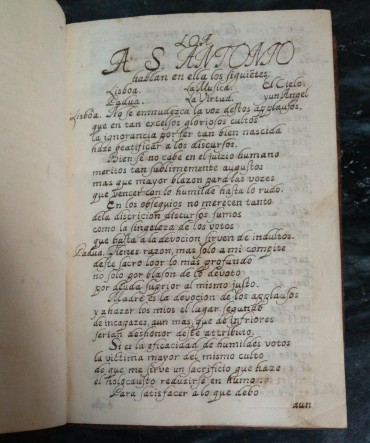 LOA
A S. ANTONIO
hablan en ella los siguiētes
Lisboa. La Musica. El Cielo.
Padua. La Virtud. y un Angel
Lisboa. No se enmudezca la voz destos applausos,
que en tan excelsos gloriosos cultos
la ignorancia por ser tan bien nascida
haze beatificar a los discursos.
Bien se no cabe en el juizio humano
meritos tan sublimemente augustos
mas que mayor blazon para las vozes
que vencer con lo humilde hasta lo rudo.
En los obsequios no merecen tanto
dela discricion discursos sumos
como la singeleza de los votos
que basta a la devocion sirven de indultos.
Padua. Tienes razon, mas solo a mi compite
deste sacro loor lo mas profundo
no solo por blason de lo devoto
por deuda superior al mismo justo.
Madre es la devocion de los applausos
y a hazer los mios el lugar segundo
de incapazes aun mas, que de inferiores
serian deshonor deste attributo.
Si es la eficacidad de humildes votos
la victima mayor del mismo culto
de que me sirve un sacrificio que haze
el holocausto reduzirse en humo.
Para satisfacer a lo que debo
aun